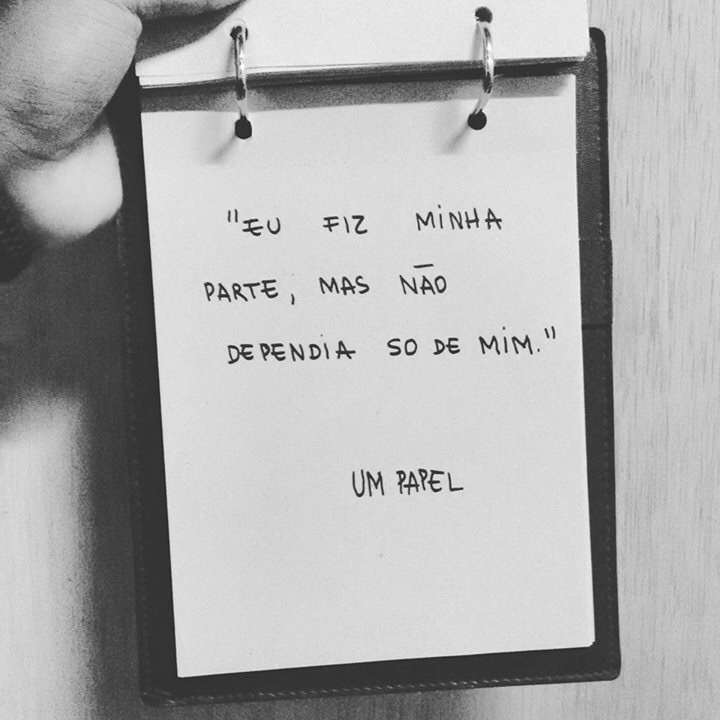 "EU FIZ MINHA
PARTE, MAS NÃO
DEPENDIA SO DE MIM."
UM PAPEL